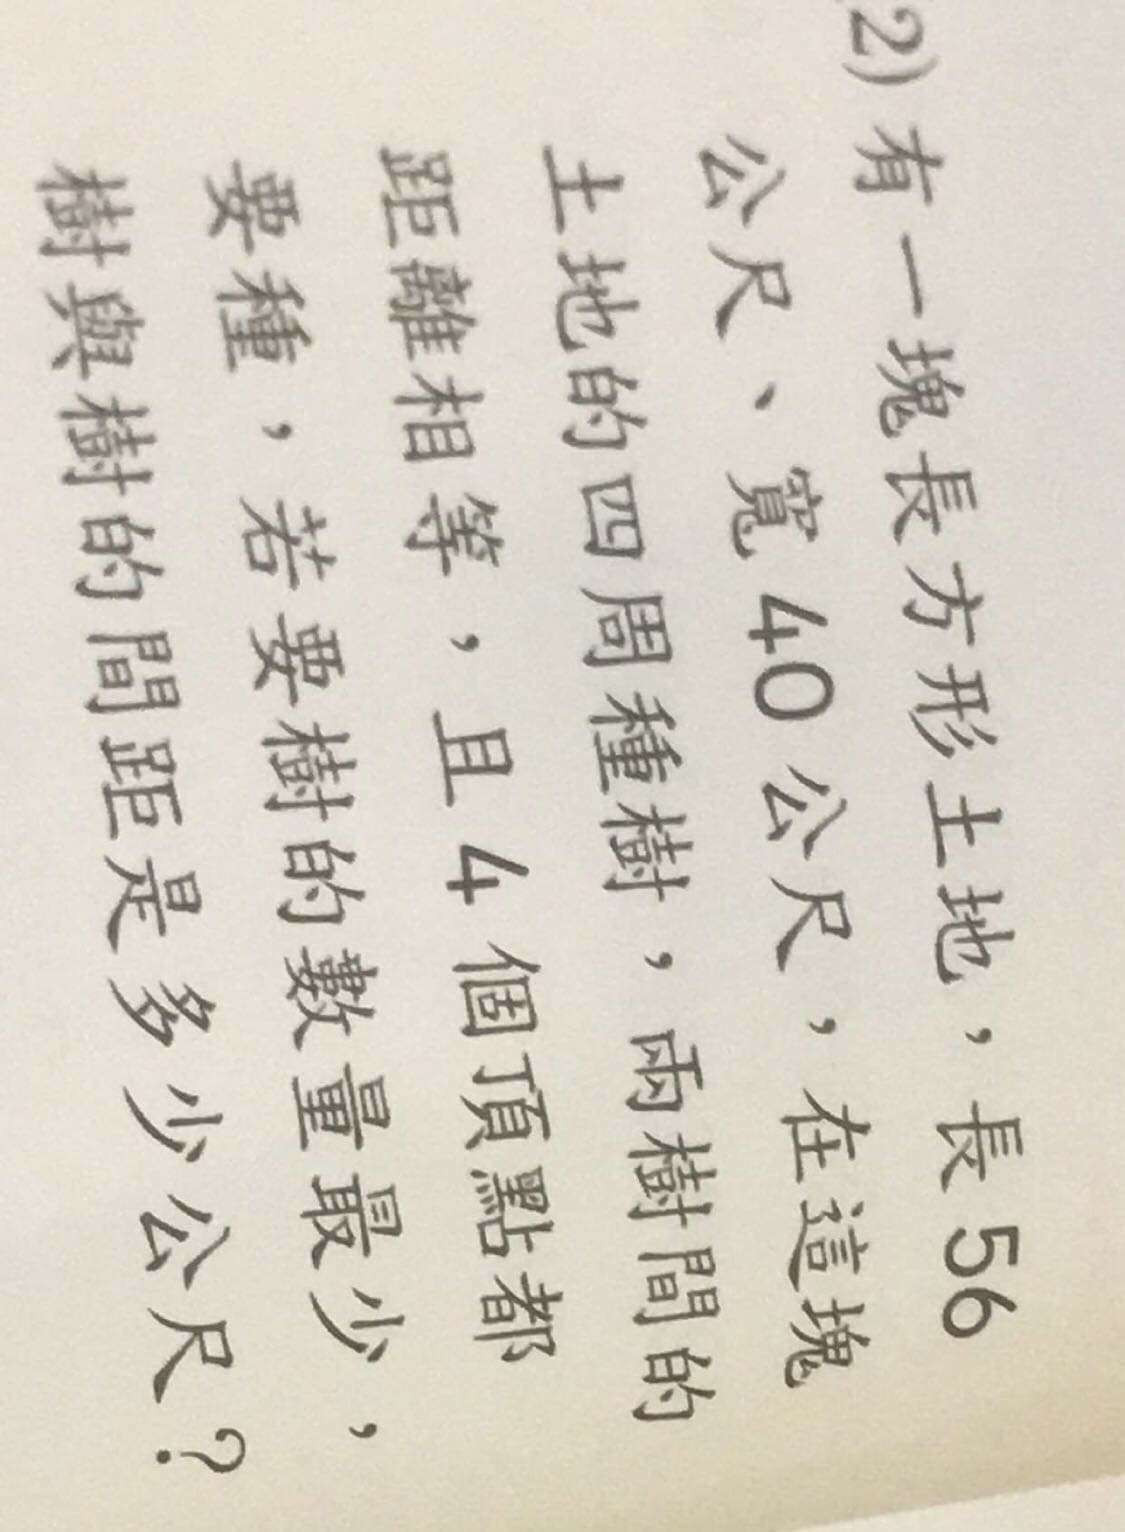 2) 有一塊長方形土地，長 56
公尺、寬 40 公尺，在這塊
土地的四周種樹，兩樹間的
距離相等，且 4 個頂點都
要種，若要樹的數量最少，
樹與樹的間距是多少公尺？